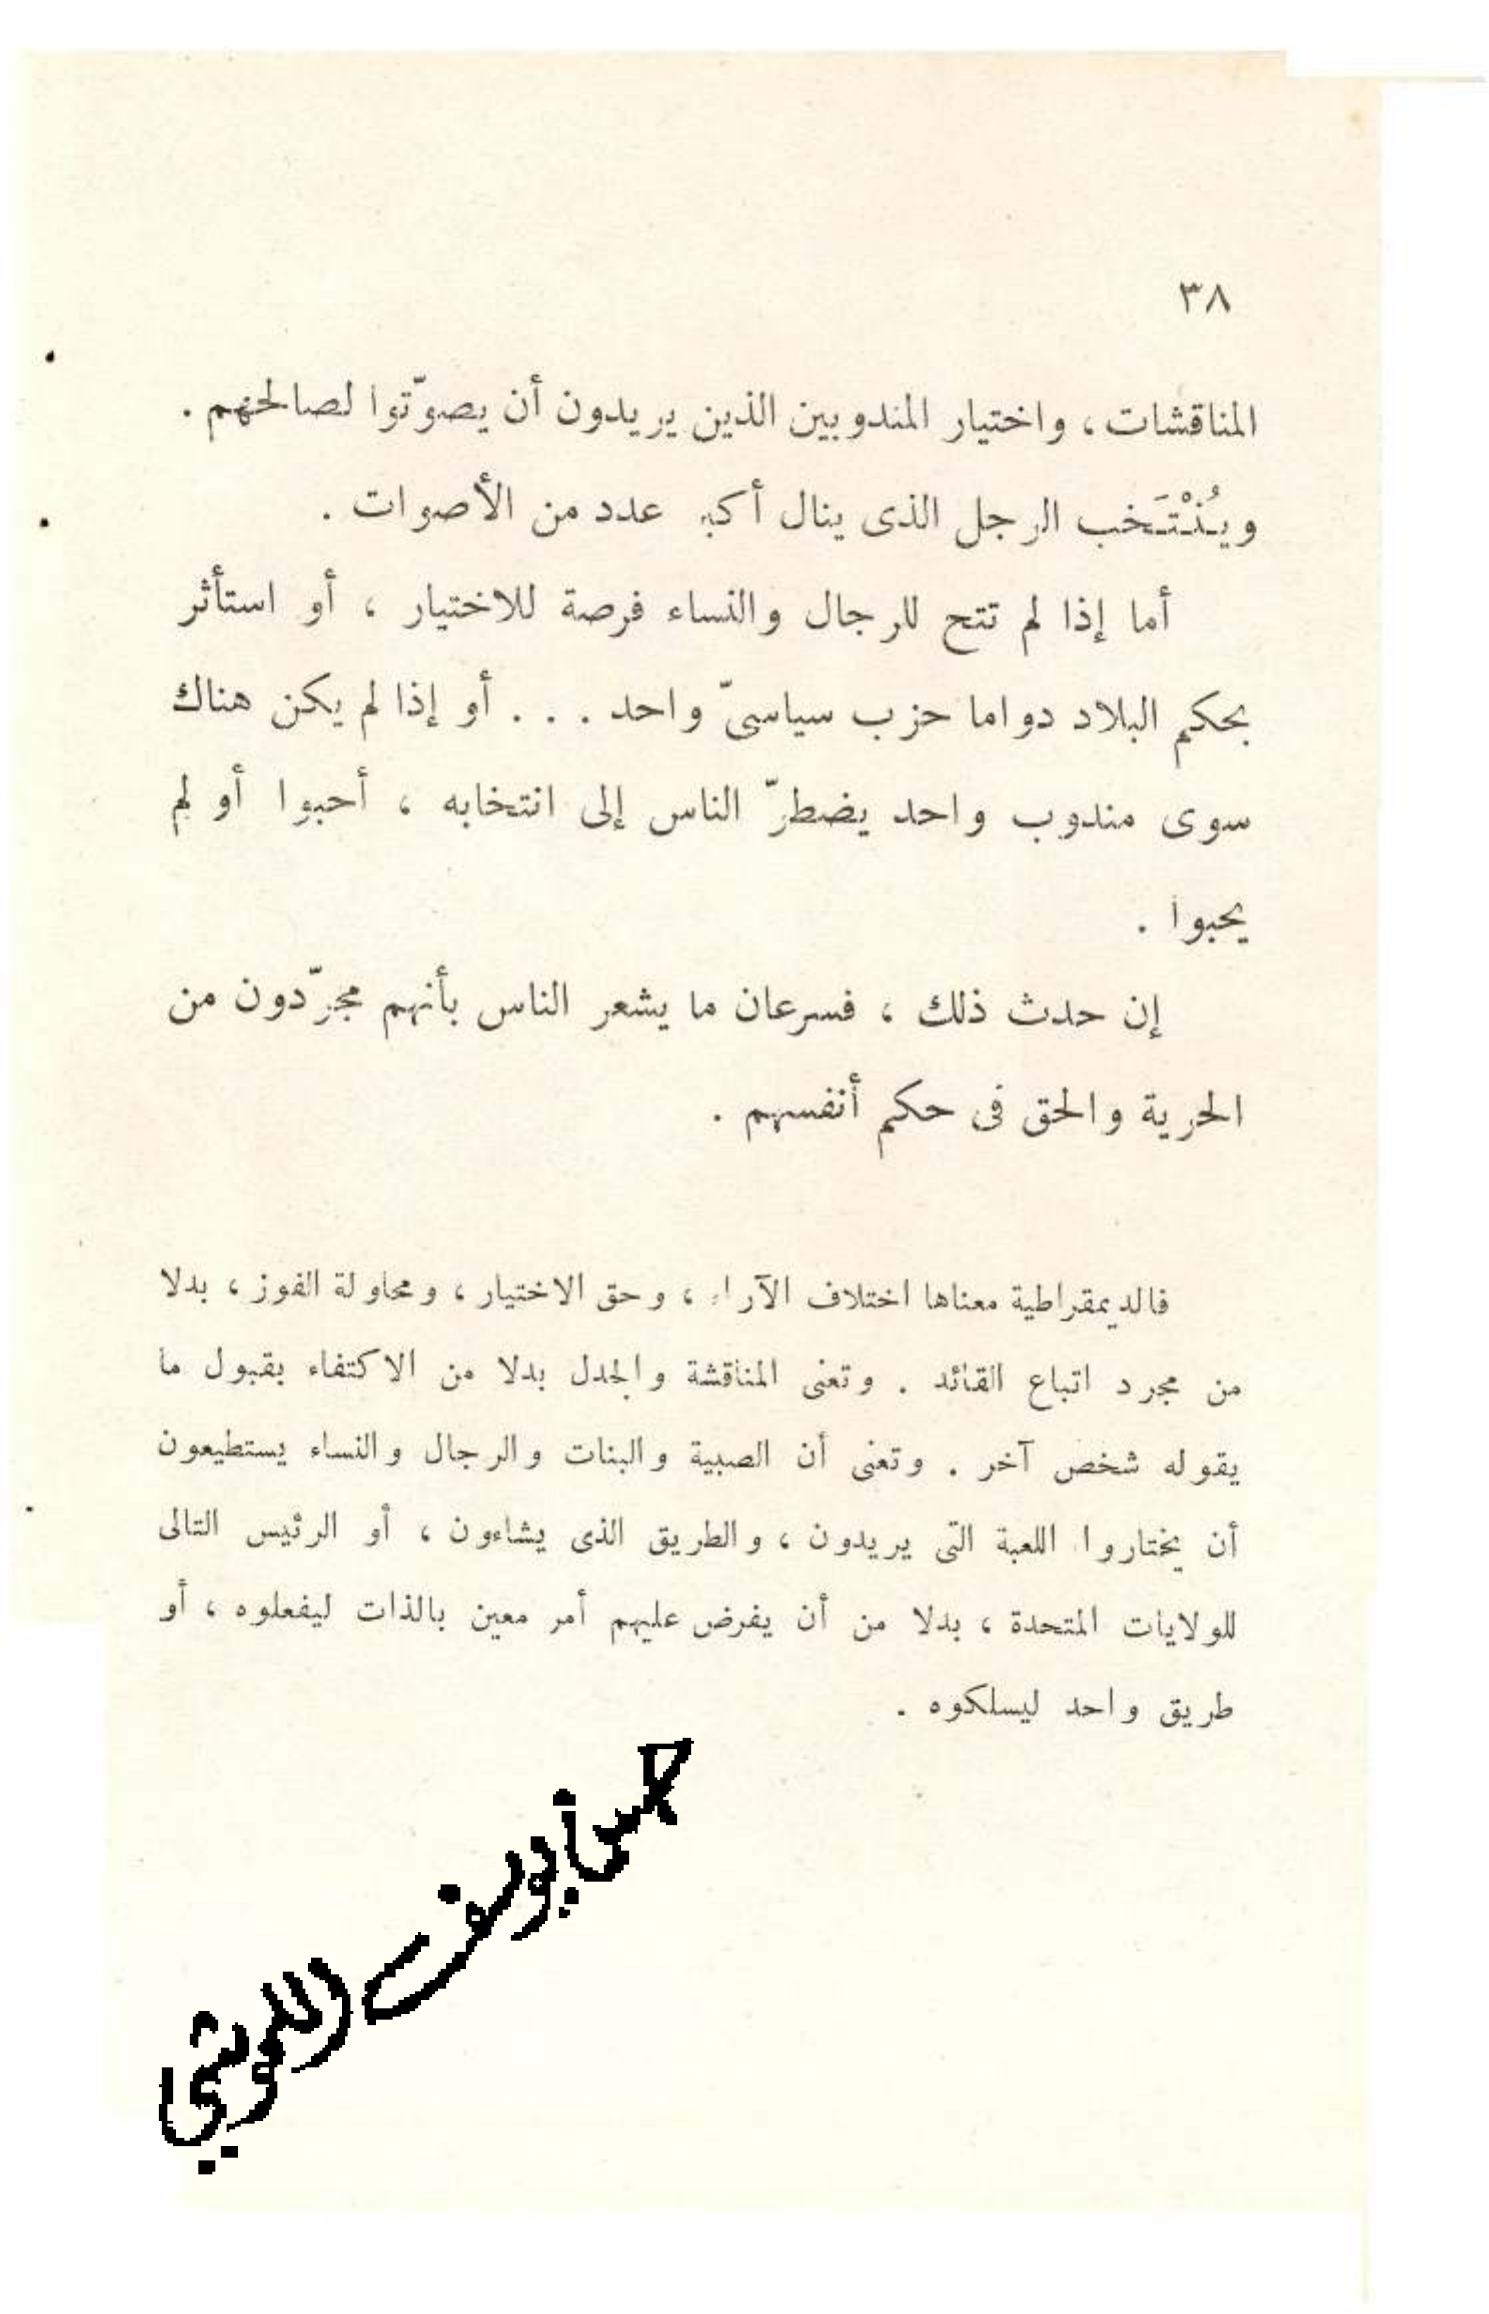 ٣٨
المناقشات ، واختيار المندوبين الذين يريدون أن يصوّتوا لصالحهم .
ويُنْتَخب الرجل الذى ينال أكبر عدد من الأصوات .
أما إذا لم تتح للرجال والنساء فرصة للاختيار ، أو استأثر
بحكم البلاد دواما حزب سياسىّ واحد . . . أو إذا لم يكن هناك
سوى مندوب واحد يضطرّ الناس إلى انتخابه ، أحبوا أو لم
يحبوا .
إن حدث ذلك ، فسرعان ما يشعر الناس بأنهم مجرّدون من
الحرية والحق فى حكم أنفسهم .
فالديمقراطية معناها اختلاف الآراء ، وحق الاختيار ، ومحاولة الفوز ، بدلا
من مجرد اتباع القائد . وتعنى المناقشة والجدل بدلا من الاكتفاء بقبول ما
يقوله شخص آخر . وتعنى أن الصبية والبنات والرجال والنساء يستطيعون
أن يختاروا اللعبة التى يريدون ، والطريق الذى يشاءون ، أو الرئيس التالى
للولايات المتحدة ، بدلا من أن يفرض عليهم أمر معين بالذات ليفعلوه ، أو
طريق واحد ليسلكوه .
حسن يوسف